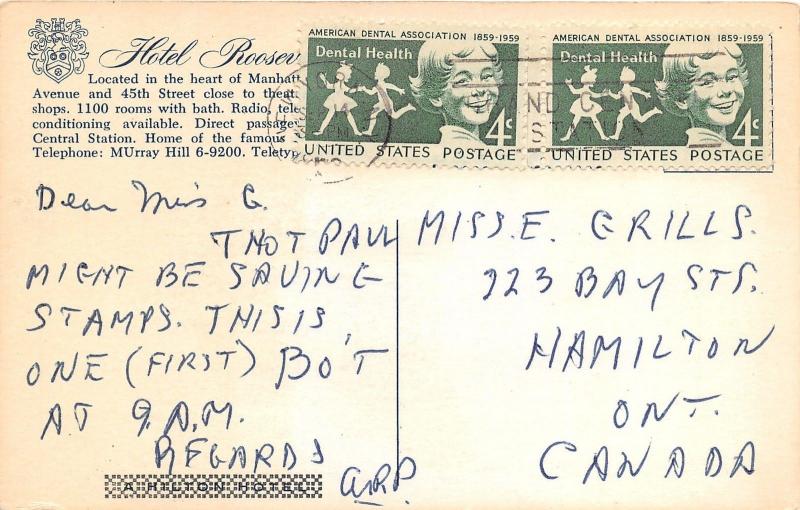 Hotel Roosev
Located in the heart of Manhatt
Avenue and 45th Street close to theat
shops. 1100 rooms with bath. Radio, tele
conditioning available. Direct passage
Central Station. Home of the famous
Telephone: MUrray Hill 6-9200. Teletyp
AMERICAN DENTAL ASSOCIATION 1859-1959
Dental Health
4c
UNITED STATES POSTAGE
AMERICAN DENTAL ASSOCIATION 1859-1959
Dental Health
4c
UNITED STATES POSTAGE
Dear Miss G.
THOT PAUL
MIGHT BE SAVING
STAMPS. THIS IS
ONE (FIRST) BO'T
AT 9.A.M.
REGARDS
ARP.
A HILTON HOTEL
MISS.E. GRILLS.
223 BAY ST S.
HAMILTON
ONT.
CANADA